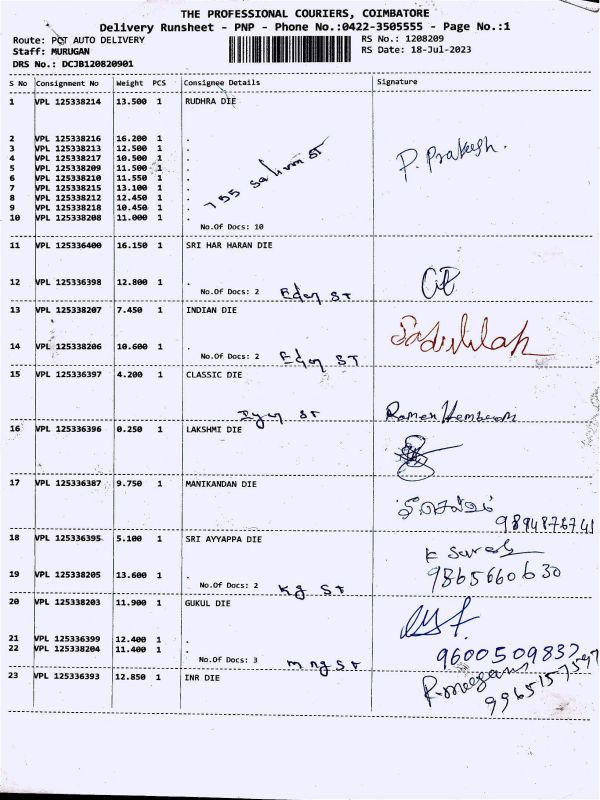 THE PROFESSIONAL COURIERS, COIMBATORE
Delivery Runsheet - PNP - Phone No.:0422-3505555 - Page No.:1
Route: PCT AUTO DELIVERY RS No.: 1208209
Staff: MURUGAN RS Date: 18-Jul-2023
DRS No.: DCJB120820901
S No Consignment No Weight PCS Consignee Details Signature
1 VPL 125338214 13.500 1 RUDHRA DIE
2 VPL 125338216 16.200 1 .
3 VPL 125338213 12.500 1 . P. Prakash.
4 VPL 125338217 10.500 1 .
5 VPL 125338209 11.500 1 .
6 VPL 125338210 11.550 1 .
7 VPL 125338215 13.100 1 .
8 VPL 125338212 12.450 1 . 755 ST
9 VPL 125338218 10.450 1 .
10 VPL 125338208 11.000 1 .
No.Of Docs: 10
11 VPL 125336400 16.150 1 SRI HAR HARAN DIE
12 VPL 125336398 12.800 1 .
No.Of Docs: 2 Eden ST
13 VPL 125338207 7.450 1 INDIAN DIE
14 VPL 125338206 10.600 1 .
No.Of Docs: 2 Eden ST
15 VPL 125336397 4.200 1 CLASSIC DIE
ST Ramen Hembram
16 VPL 125336396 0.250 1 LAKSHMI DIE
17 VPL 125336387 9.750 1 MANIKANDAN DIE
9894876741
18 VPL 125336395 5.100 1 SRI AYYAPPA DIE
K Suresh
19 VPL 125338205 13.600 1 .
No.Of Docs: 2 Kg ST 9865660630
20 VPL 125338203 11.900 1 GUKUL DIE
21 VPL 125336399 12.400 1 .
22 VPL 125338204 11.400 1 .
No.Of Docs: 3 mng ST
23 VPL 125336393 12.850 1 INR DIE